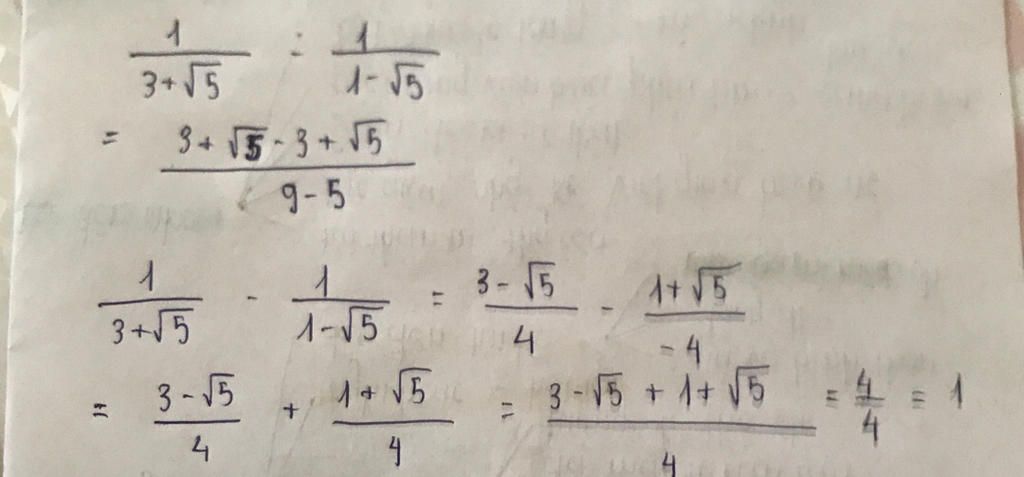 1/(3+√5) : 1/(1-√5)
= (3+√5-3+√5)/(9-5)
1/(3+√5) - 1/(1-√5) = (3-√5)/4 - (1+√5)/(-4)
= (3-√5)/4 + (1+√5)/4 = (3-√5+1+√5)/4 = 4/4 = 1